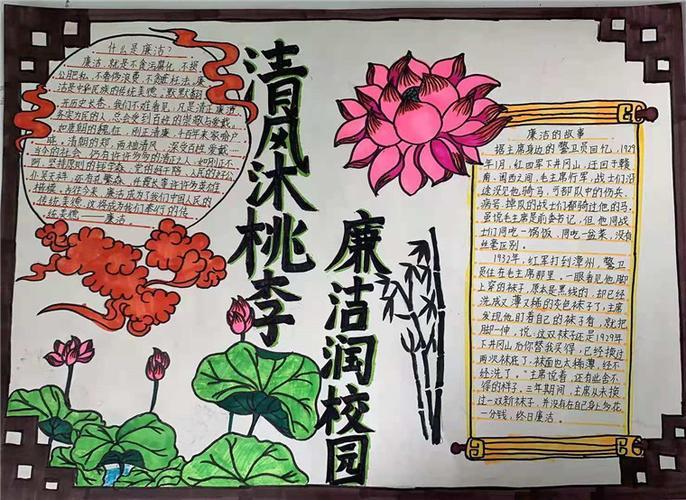 什么是廉洁?
廉洁,就是不贪污腐化,不损
公肥私,不奢侈浪费,不贪赃枉法,廉
洁是中华民族的传统美德,默默翻
开历史长卷,我们不难看见,凡是清正廉洁
务实为民的人,总会受到百姓的崇敬与爱戴,
如唐朝的魏征,刚正清廉,千百年来家喻户
晓,清朝的郑,两袖清风,深受百姓爱戴
当今的社会,仍有许许多多的清正之人,如刚正不
阿,坚持原则的
传统美德——廉洁
清风沐桃李
廉洁润校园
廉洁的故事
据主席身边的警卫员回忆,1929
年1月,红四军下井冈山,迂回于赣
南、闽西之间,毛主席行军,战士们沿
途没见他骑马,可部队中的伤兵、
病号、掉队的战士们都骑过他的马,
虽说毛主席是前委书记,但他同战
士们同吃一锅饭、同吃一盆菜,没有
丝毫区别。
1932年,红军打到漳州,警卫
员住在毛主席那里,一眼看见他脚
上穿的袜子,原本是黑线的,却已经
洗成又薄又稀的灰色袜子了,主席
发现他们看自己的袜子看,就把
脚一伸,说:这双袜子还是1929年
下井冈山后你替我买得,已经换过
两次袜底了,袜面也太稀薄,经不
经洗了。"主席说着,还有些舍不
得的样子,三年期间,主席从未换
过一双新袜子,并没有在自己身上多花
一分钱,终日廉洁。